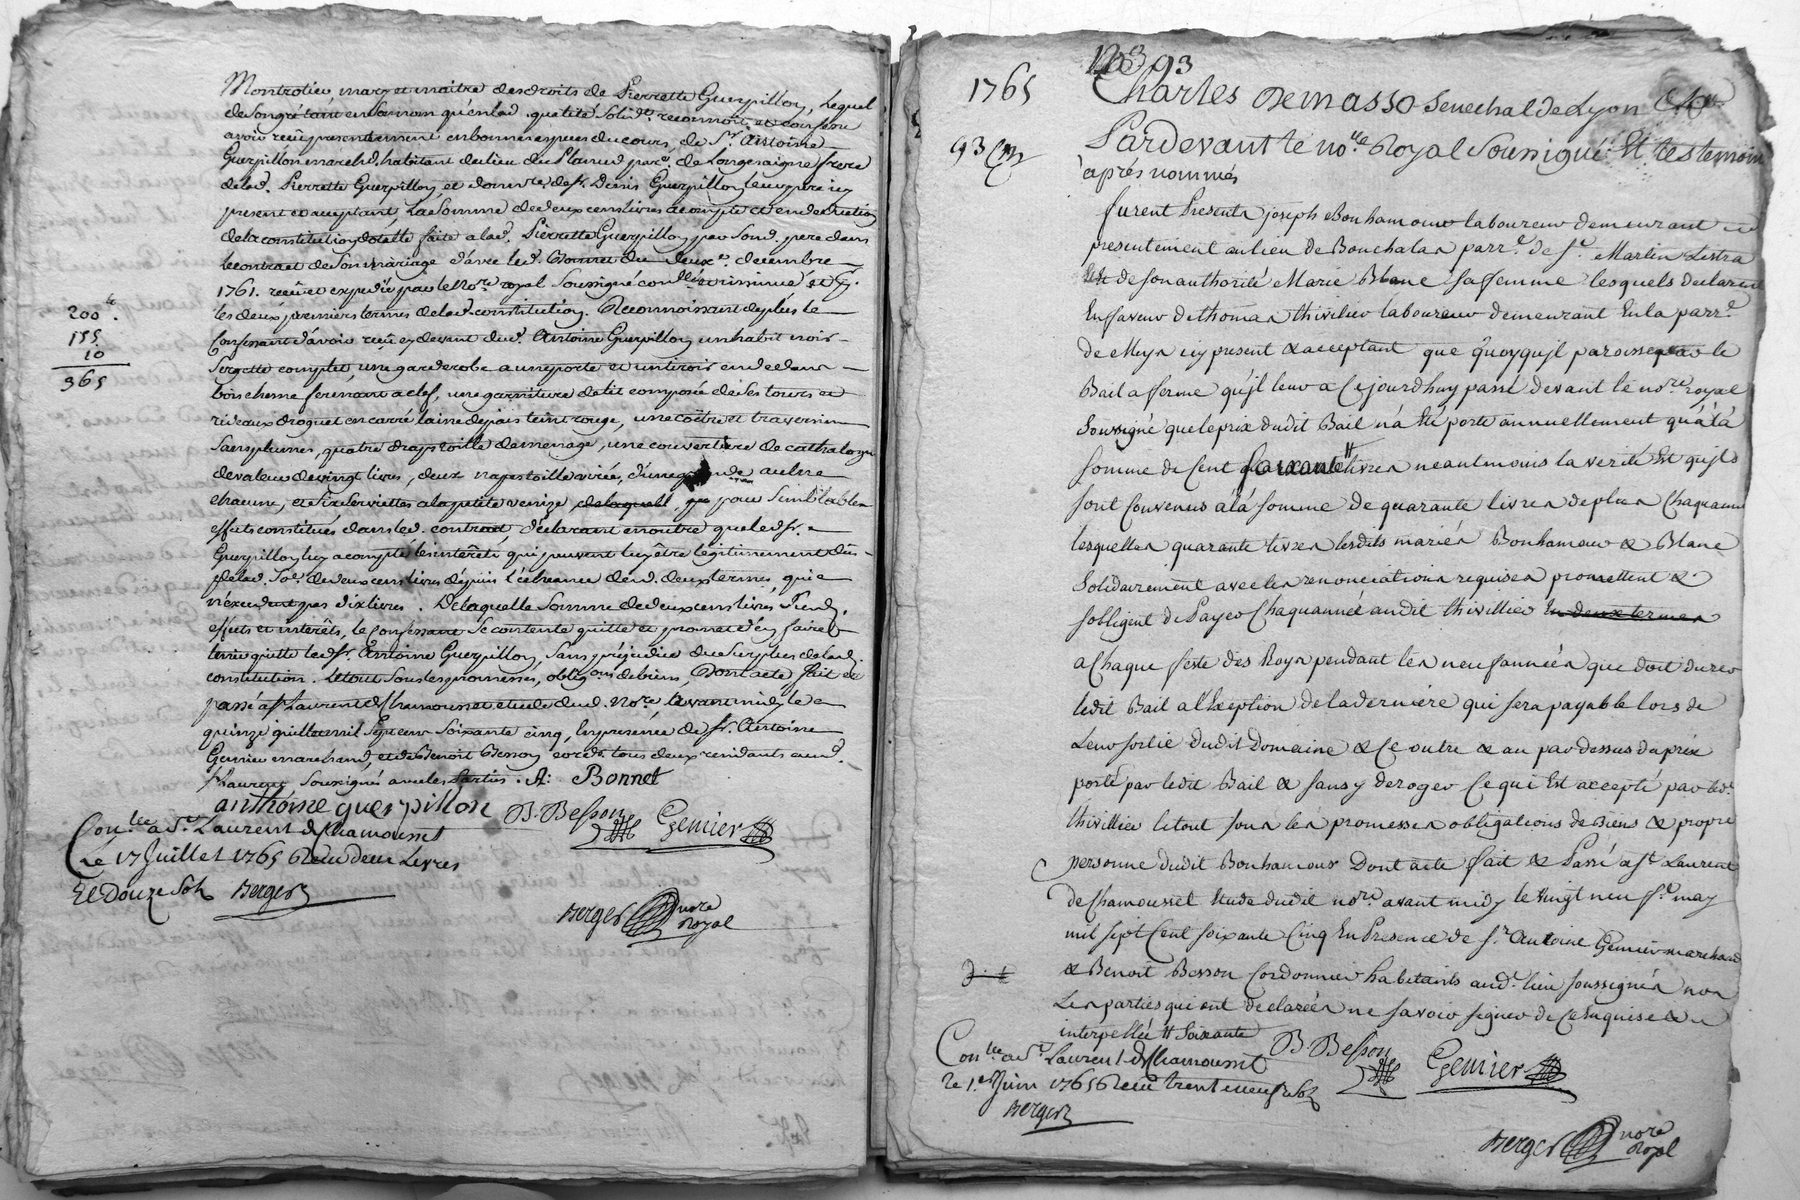 Montrotier mary et maitre des droits de Pierrette Guerpillon, Lequel
de son gré tant en son nom qu'en lad. qualité Solid.t reconnoit et confesse
avoir reçu presentement en bonnes especes du cours, de S.r Antoine
Guerpillon march.d habitant du lieu du Planud par.e de Longesaigne frere
de lad. Pierrette Guerpillon, et donat.re de S.r Denis Guerpillon leur pere icy
present et acceptant, La Somme de deux cens livres a compte et en deduction
de la constitution dotalle faite a lad. Pierrette Guerpillon par Son d. pere dans
le contrat de Son mariage d'avec led. Bonnet du deux.e decembre
1761. reçu et expedié par le No.re royal Soussigné controllé insinué et c.
les deux premiers termes de lad. constitution. Reconnoissant de plus le
Confessant d'avoir reçu cy devant dud. Antoine Guerpillon un habit noir
Sergette complet, une garderobe a une porte et un tiroir en dedans
bois chesne fermant a clef, une garniture de lit composée de Ses tours et
rideaux droguet en carré laine de païs teint rouge, une coëtre et traversin
Sans plumes, quatre draps toille de menage, une couvertüre de cathalogne
de valeur de vingt livres, deux napes toille virée, d'une aulne
chacune, et Six Serviettes a la petite venize pour Semblables
effets constitués dans led. contrat, déclarant en outre que led. Sr.
Guerpillon luy a compté les interêts qui peuvent luy être legitimement dûs
de lad. So.e de deux cens livres depuis l'écheance des d. deux termes, qui
n'excedent pas dix livres. De laquelle Somme de deux cens livres Susd.
effets et interêts, le Confessant Se contente quitte et promet d'en faire
tenir quitte led. Sr. Antoine Guerpillon, Sans préjudice du Surplus de lad.
constitution. Le tout Sous les promesses, oblig.ons de biens, Dont acte fait et
passé a St Laurent de Chamousset etude dud. No.re avant midy le
quinze juillet mil Sept cens Soixante cinq, En presence de Sr. Antoine
Genier marchand, et de Benoit Besson cord.r tous deux residants aud.
St Laurent Soussigné avec les Parties. A: Bonnet
200.tt
155.
10
365
anthoine guerpillon B. Besson Genier
Con.llé a S.t Laurent de Chamousset
Le 17 Juillet 1765 Reçu deux Livres
Et Douze Sols Berger
Berger nore
Royal
1765
93
Charles Demasso Senechal de Lyon
Pardevant le no.re Royal Soussigné Et les temoins
après nommés
furent Presents joseph Bonhamour laboureur demeurant
presentement au lieu de Bouchalas parr.e de S.t Martin Lestra
de son authorité Marie Blanc sa femme lesquels declarent
En faveur de thomas thivillier laboureur demeurant En la parr.e
de Meys icy present & acceptant que quoy qu'jl paroisse par le
Bail a ferme qu'jl leur a Cejourdhuy passé devant le no.re royal
Soussigné que le prix dudit Bail n'a Eté porté annuellement qu'à la
somme de Cent soixante livres neantmoins la verité Est qu'jls
sont Convenus a la somme de quarante livres de plus Chaque année
lesquelles quarante livres lesdits mariés Bonhamour & Blanc
solidairement avec les renonciations requises promettent &
s'obligent de Payer Chaquannée audit thivillier En deux termes
a Chaque feste des Roys pendant les neuf années que doit durer
ledit Bail a l'Exception de la derniere qui sera payable lors de
Leur sortie dudit Domaine & Ce outre & au par dessus du prix
porté par ledit Bail & sans y deroger Ce qui Est accepté par led.
thivillier le tout sous les promesses obligations de Biens & propre
personne dudit Bonhamour Dont acte fait & Passé a St Laurent
de Chamousset Etude dudit no.re avant midy le vingt neuf may
mil sept Cent soixante Cinq En Presence de S.r Antoine Genier marchand
& Benoit Besson Cordonnier habitants aud. lieu soussignés non
Les parties qui ont declarées ne savoir signer de Ce Enquises &
interpellée # Soixante
B. Besson Genier
Con.llé a S.t Laurent de Chamousset
Le 1.er Juin 1765 Reçu trente neuf sols
Berger
Berger nore
Royal